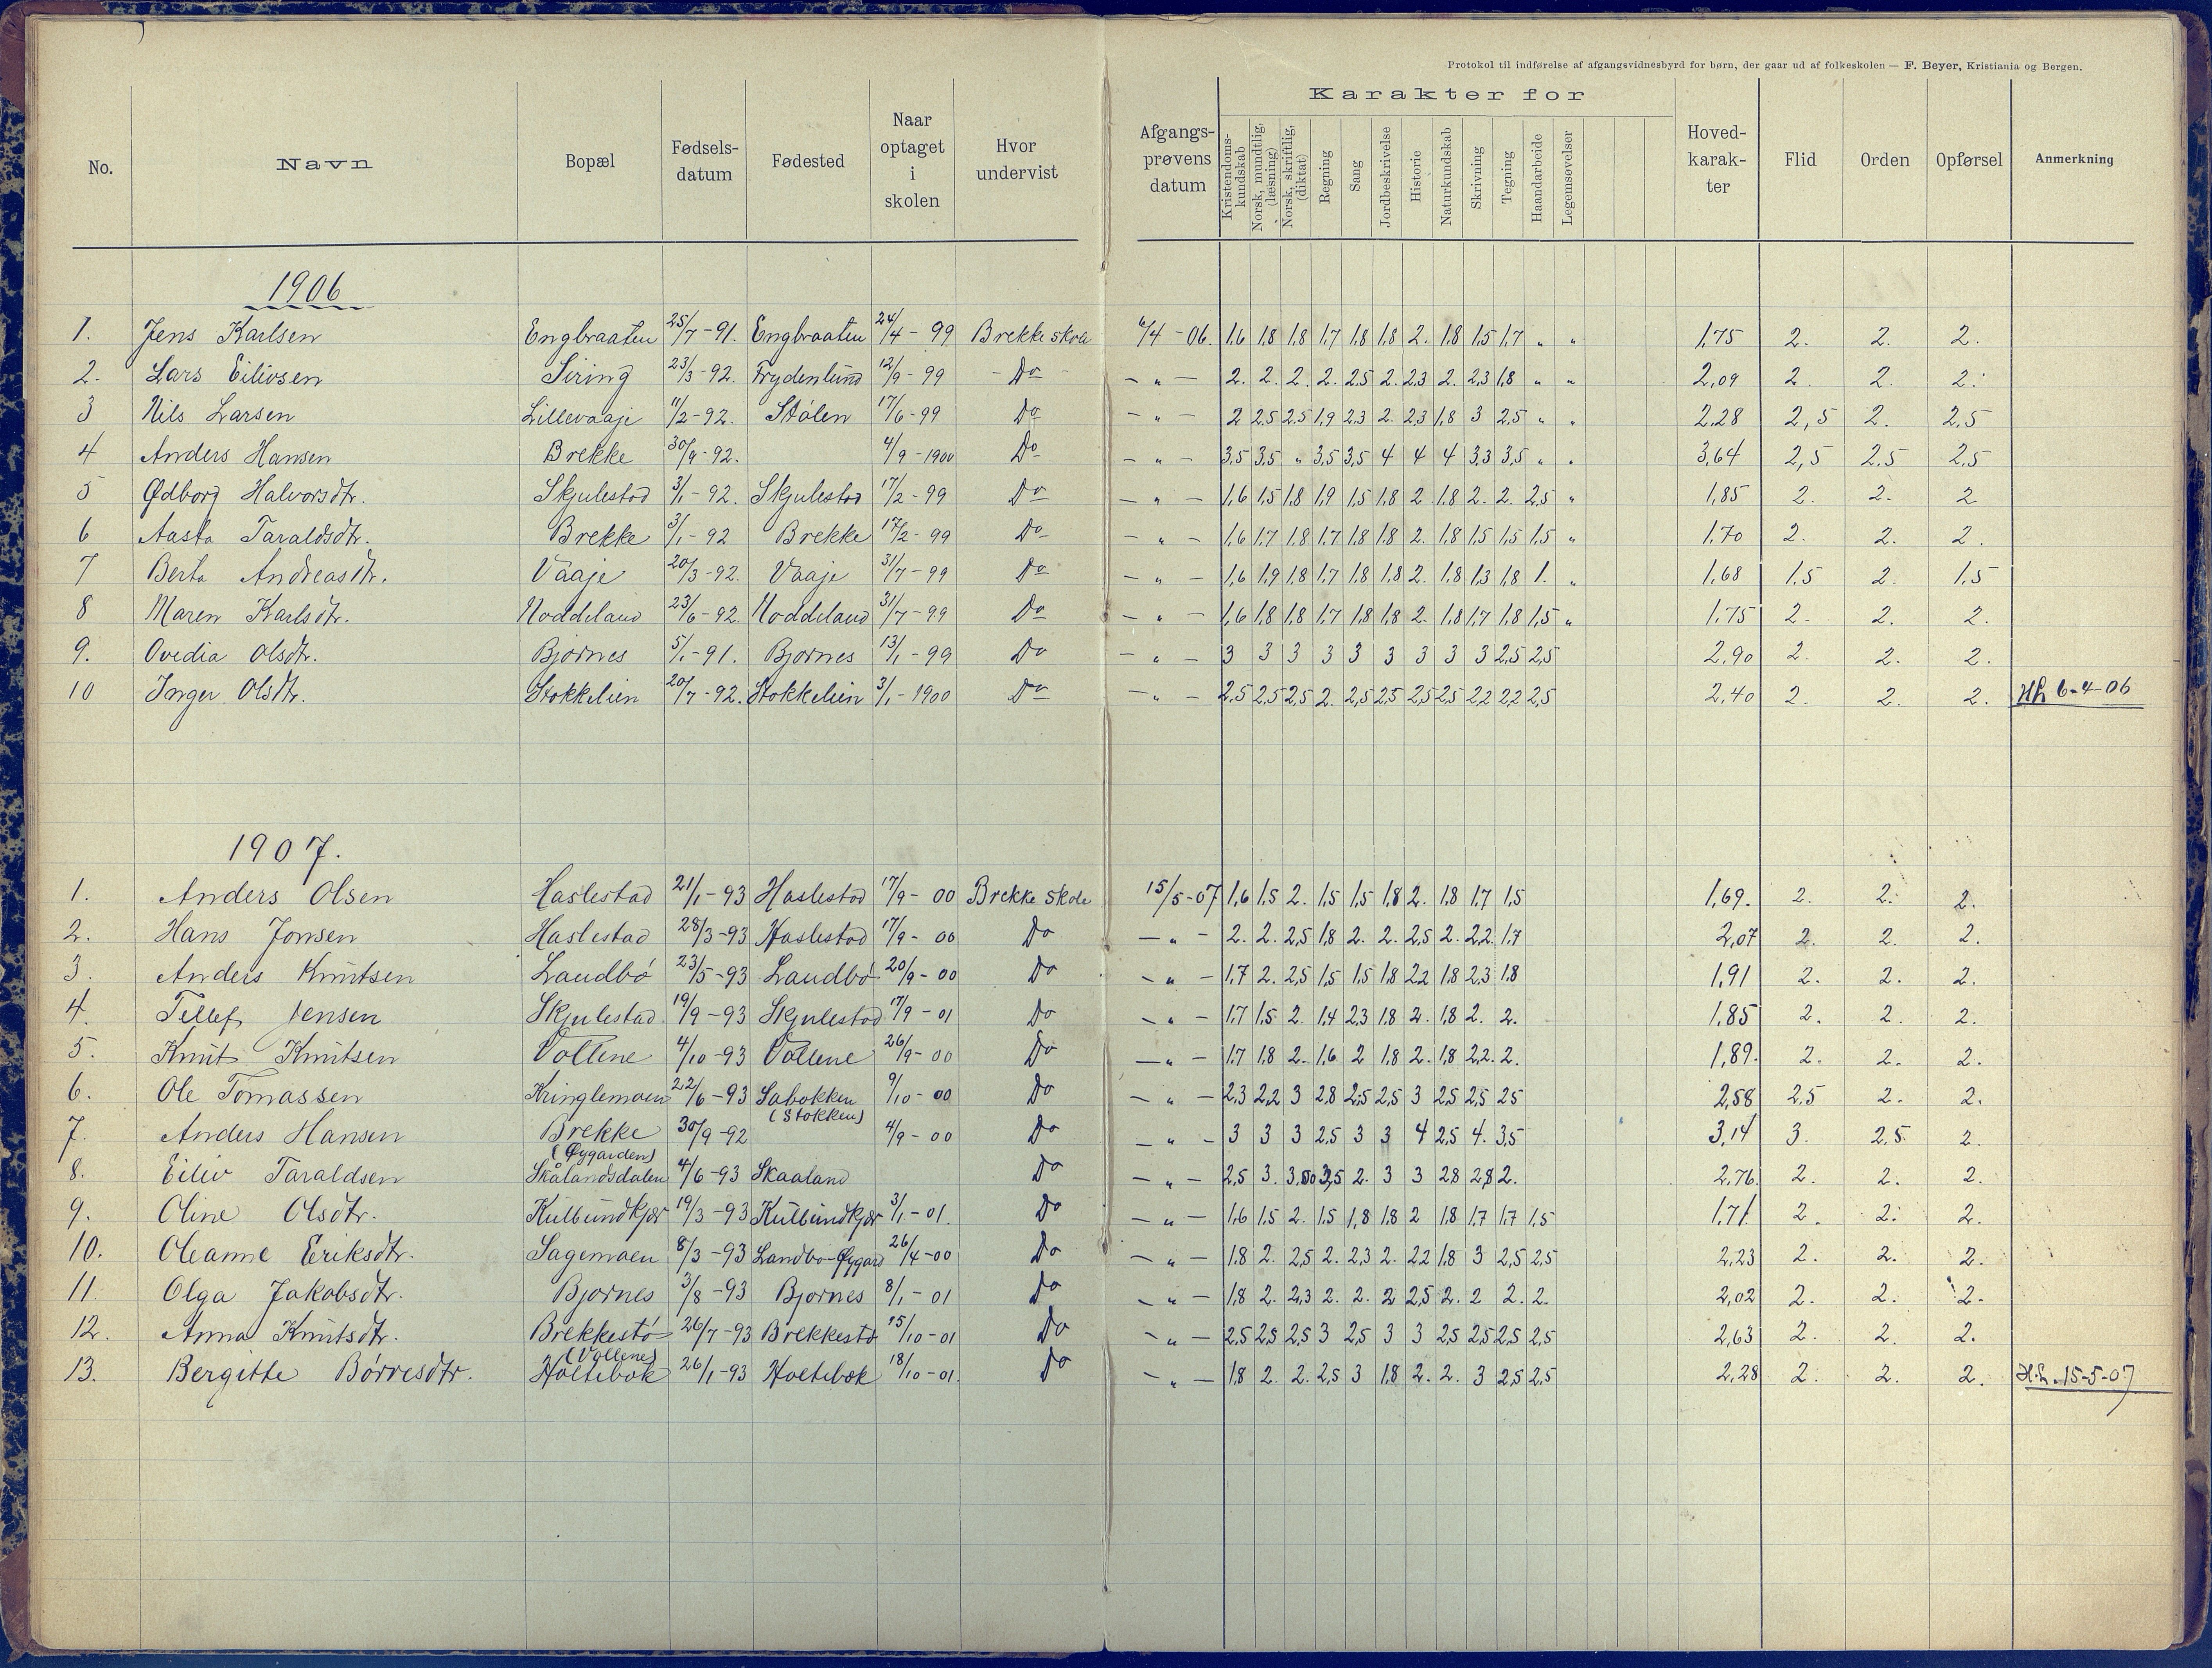 Protokol til indførelse af afgangsvidnesbyrd for børn, der gaar ud af folkeskolen — F. Beyer, Kristiania og Bergen.
No. Navn Bopæl Fødselsdatum Fødested Naar optaget i skolen Hvor undervist Afgangsprøvens datum Karakter for Kristendomskundskab Norsk, mundtlig, (læsning) Norsk, skriftlig, (diktat) Regning Sang Jordbeskrivelse Historie Naturkundskab Skrivning Tegning Haandarbeide Legemsøvelser Hovedkarakter Flid Orden Opførsel Anmerkning
1906
1. Jens Karlsen Engbraaten 25/7-91. Engbraaten 24/4-99 Brekke skole 6/4-06. 1,6 1,8 1,8 1,7 1,8 1,8 2. 1,8 1,5 1,7 " " 1,75 2. 2. 2.
2. Lars Eilivsen Siring 23/3-92. Frydenlund 12/9-99 - Do - - " - 2. 2. 2. 2. 2.5 2. 2,3 2. 2,3 1,8 " " 2,09 2. 2. 2.
3 Nils Larsen Lillevaaje 11/2-92. Stølen 17/6-99 Do - " - 2 2,5 2,5 1,9 2,3 2. 2,3 1,8 3 2,5 " " 2,28 2,5 2. 2,5
4 Anders Hansen Brekke 30/9-92. 4/9-1900 Do - " - 3,5 3,5 " 3,5 3,5 4 4 4 3,3 3,5 " " 3,64 2,5 2.5 2,5
5 Ødborg Halvorsdtr. Skjulestad 3/1-92. Skjulestad 17/2-99 Do - " - 1,6 1,5 1,8 1,9 1,5 1,8 2 1,8 2. 2. 2,5 " 1,85 2. 2. 2
6 Aasta Taraldsdtr. Brekke 3/1-92 Brekke 17/2-99 Do - " - 1,6 1,7 1,8 1,7 1,8 1,8 2. 1,8 1,5 1,5 1,5 " 1,70 2. 2. 2.
7 Berta Andreasdtr. Vaaje 20/3-92. Vaaje 31/7-99 Do - " - 1,6 1,9 1,8 1,7 1,8 1,8 2. 1,8 1,3 1,8 1. " 1,68 1,5 2. 1,5
8 Maren Karlsdtr. Noddeland 23/6-92. Noddeland 31/7-99 Do - " - 1,6 1,8 1,8 1,7 1,8 1,8 2. 1,8 1,7 1,8 1,5 " 1.75 2. 2. 2.
9. Ovedia Olsdtr. Bjørnes 5/1-91. Bjørnes 13/1-99 Do - " - 3 3 3 3 3 3 3 3 3 2,5 2,5 2,90 2. 2. 2.
10 Inger Olsdtr. Stokkelien 20/7-92. Stokkelien 3/1-1900 Do - " - 2,5 2,5 2,5 2. 2,5 2,5 2,5 2,5 2,2 2,2 2,5 2,40 2. 2. 2. 6-4-06
1907.
1. Anders Olsen Haslestad 21/1-93 Haslestad 17/9-00 Brekke skole 15/5-07 1,6 1,5 2. 1,5 1,5 1,8 2. 1,8 1,7 1,5 1,69. 2. 2. 2.
2. Hans Jonsen Haslestad 28/3-93 Haslestad 17/9-00 Do - " - 2. 2. 2,5 1,8 2. 2. 2,5 2. 2,2. 1,7 2,07 2. 2. 2.
3. Anders Knutsen Landbø 23/5-93 Landbø 20/9-00 Do - " - 1,7 2. 2,5 1,5 1,5 1,8 2,2 1,8 2,3 1,8 1,91 2. 2. 2.
4. Tellef Jensen Skjulestad 19/9-93 Skjulestad 17/9-01 Do - " - 1,7 1,5 2. 1,4 2,3 1,8 2. 1,8 2. 2. 1,85 2. 2. 2.
5. Knut Knutsen Vollene 4/10-93 Vollene 26/9-00 Do - " - 1,7 1,8 2. 1,6 2 1,8 2. 1,8 2,2. 2. 1,89. 2. 2. 2.
6. Ole Tomassen Kringlemoen 22/6-93 Labakken (Stokken) 9/10-00 Do - " - 2,3 2,2 3 2,8 2,5 2,5 3 2,5 2,5 2,5 2,58 2,5 2. 2.
7. Anders Hansen Brekke (Øygarden) 30/9-92 4/9-00 Do - " - 3 3 3 2,5 3 3 4 2,5 4. 3,5 3,14 3. 2,5. 2.
8. Eiliv Taraldsen Skålandsdalen 4/6-93 Skaaland Do - " - 2,5 3. 2. 3 3 2,8 2,8 2. 2,76. 2. 2. 2.
9. Oline Olsdtr. Kulbundkjær 19/3-93 Kulbundkjær 3/1-01. Do - " - 1,6 1,5 2. 1,5 1,8 1,8 2 1,8 1,7 1,7 1,5 1,71. 2. 2. 2.
10. Oleanne Eriksdtr. Sagemoen 8/3-93 Landbø-Øygard 26/4-00 Do - " - 1,8 2. 2,5 2. 2,3 2. 2,2 1,8 3 2,5 2,5 2,23 2. 2. 2.
11. Olga Jakobsdtr. Bjørnes 3/8-93 Bjørnes 8/1-01 Do - " - 1,8 2. 2,3 2. 2. 2 2,5 2. 2 2. 2. 2,02 2. 2. 2.
12. Anna Knutsdtr. Brekkestø (Vollene) 26/7-93 Brekkestø 15/10-01 Do - " - 2,5 2,5 2,5 3 2,5 3 3 2,5 2,5 2,5 2,5 2,63 2. 2. 2.
13. Bergitte Børresdtr. Holtebok 26/1-93 Holtebok 18/10-01. Do - " - 1,8 2. 2. 2,5 3 1,8 2. 2. 3 2,5 2,5 2,28 2. 2. 2. 15-5-07